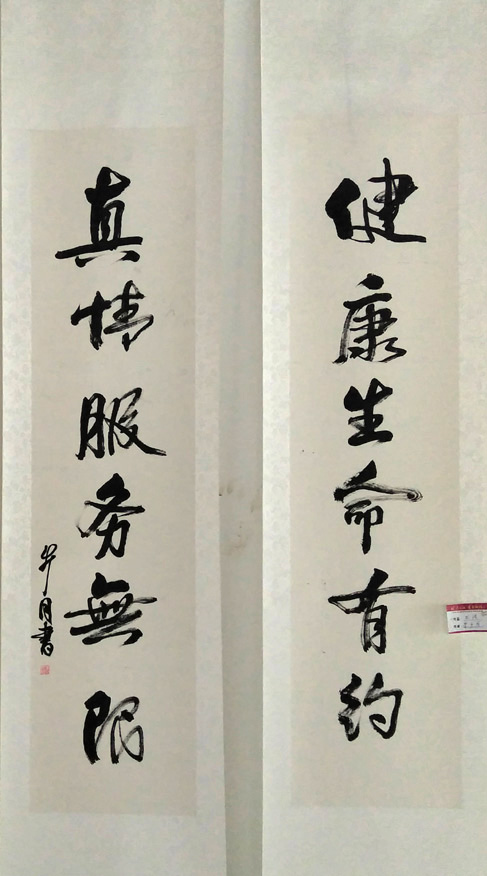 健康生命有约
真情服务無限